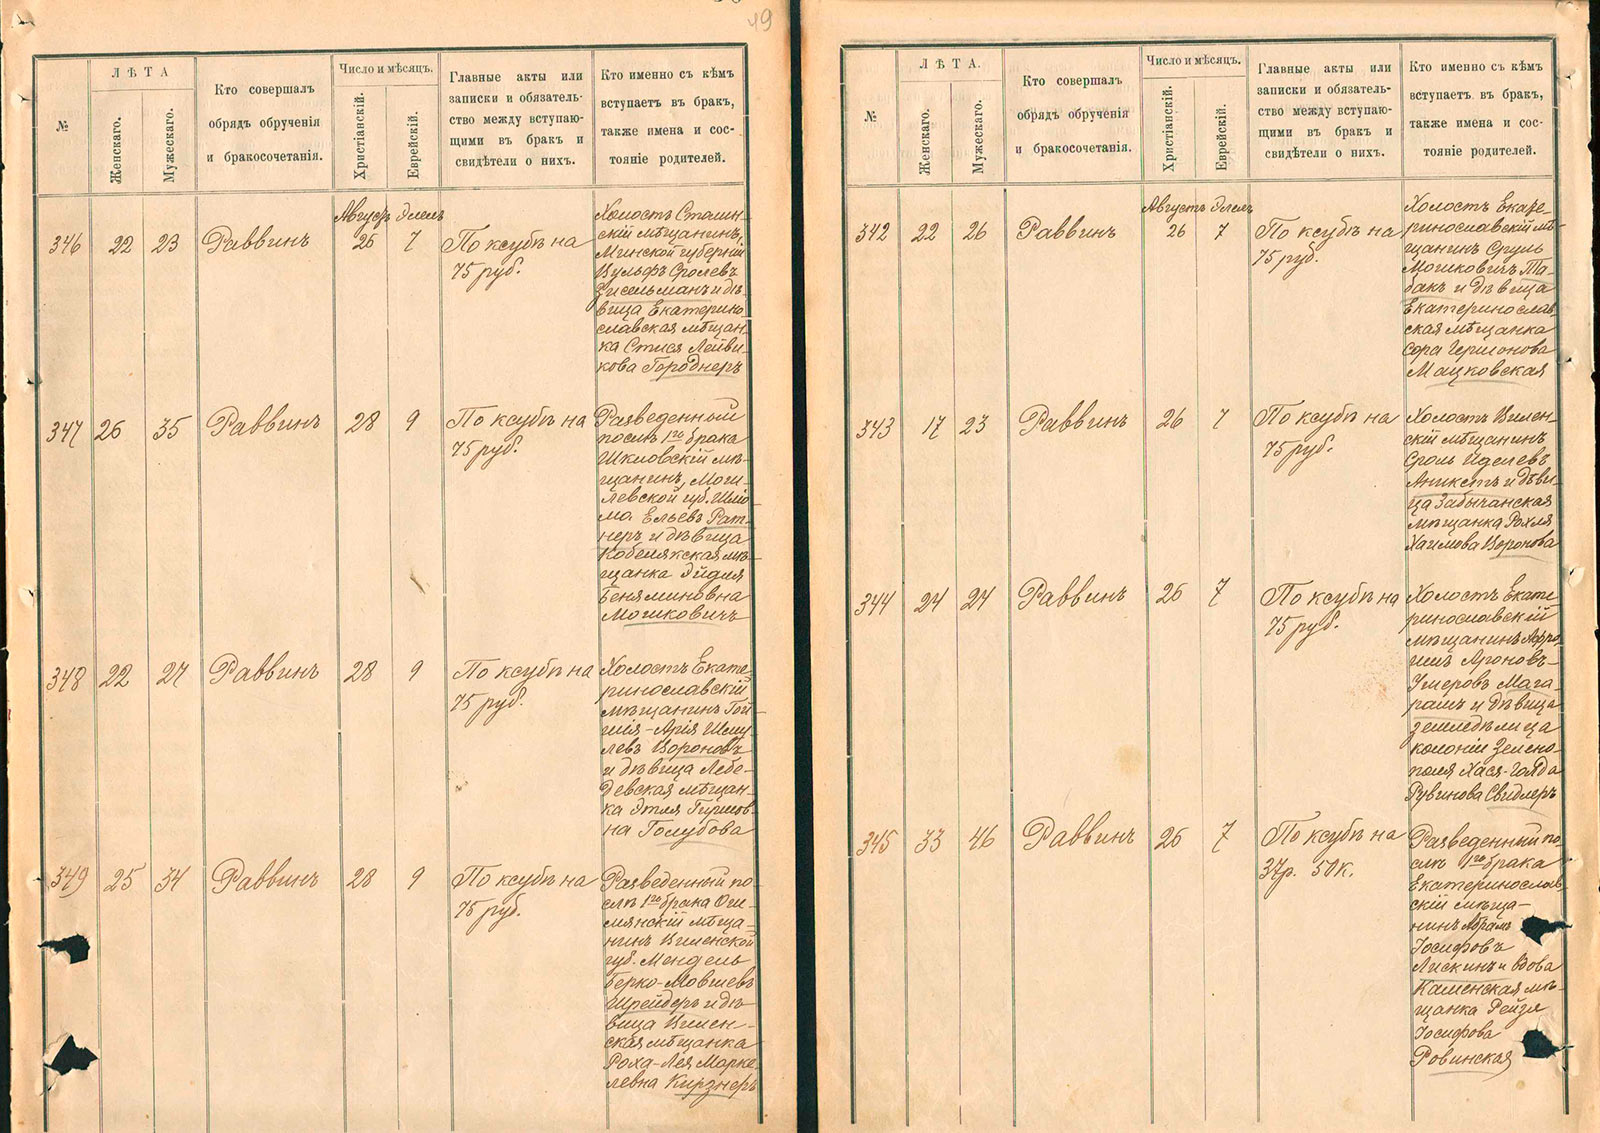 49
№
ЛѢТА
Женскаго.
Мужескаго.
Кто совершалъ
обрядъ обрученія
и бракосочетанія.
Число и мѣсяцъ.
Христіанскій.
Еврейскій.
Главные акты или
записки и обязатель-
ство между вступаю-
щими въ бракъ и
свидѣтели о нихъ.
Кто именно съ кѣмъ
вступаетъ въ бракъ,
также имена и сос-
тояніе родителей.
Августъ Элелъ
346 22 23 Раввинъ 26 7 По ксубѣ на
75 руб.
Холостъ Столин-
скій мѣщанинъ,
Минской губерніи
Вульфъ Сролевъ
Зисельманъ и дѣ-
вица Екатерино-
славская мѣщан-
ка Стися Лейви-
кова Городнеръ
347 26 35 Раввинъ 28 9 По ксубѣ на
75 руб.
Разведенный
послѣ 1го брака
Шкловскій мѣ-
щанинъ, Моги-
левской губ. Шлио-
ма Ельевъ Рат-
неръ и дѣвица
Кобелякская мѣ-
щанка Эйдля
Беняминовна
Мошковичъ
348 22 27 Раввинъ 28 9 По ксубѣ на
75 руб.
Холостъ Екате-
ринославскій
мѣщанинъ Гой-
шія-Арія Шму-
левъ Вороновъ
и дѣвица Лебе-
девская мѣщан-
ка Этля Гиршов-
на Голубова
349 25 34 Раввинъ 28 9 По ксубѣ на
75 руб.
Разведенный по-
слѣ 1го брака Ош-
мянскій мѣща-
нинъ Виленской
губ. Мендель
Берко-Мовшевъ
Шрейдеръ и дѣ-
вица Вилен-
ская мѣщанка
Роха-Лея Марке-
левна Кирзнеръ
№
ЛѢТА.
Женскаго.
Мужескаго.
Кто совершалъ
обрядъ обрученія
и бракосочетанія.
Число и мѣсяцъ.
Христіанскій.
Еврейскій.
Главные акты или
записки и обязатель-
ство между вступаю-
щими въ бракъ и
свидѣтели о нихъ.
Кто именно съ кѣмъ
вступаетъ въ бракъ,
также имена и сос-
тояніе родителей.
Августъ Элелъ
342 22 26 Раввинъ 26 7 По ксубѣ на
75 руб.
Холостъ Екате-
ринославскій мѣ-
щанинъ Сруль
Мошковичъ Та-
бакъ и дѣвица
Екатеринослав-
ская мѣщанка
Сора Гершонова
Мацковская
343 17 23 Раввинъ 26 7 По ксубѣ на
75 руб.
Холостъ Вилен-
скій мѣщанинъ
Сроль Иделевъ
Аникстъ и дѣви-
ца Забычанская
мѣщанка Рохля
Хаимова Воронова
344 24 24 Раввинъ 26 7 По ксубѣ на
75 руб.
Холостъ Екате
ринославскій
мѣщанинъ Афро-
имъ Ароновъ-
Умеровъ Мага-
рамъ и дѣвица
земледѣлица
колоніи Зелено-
поля Хася-Голда
Рувинова Свидлеръ
345 33 46 Раввинъ 26 7 По ксубѣ на
37р. 50к.
Разведенный по
слѣ 1го брака
Екатеринослав-
скій мѣща-
нинъ Абрамъ
Іосифовъ
Лискинъ и вдова
Каменская мѣ-
щанка Рейзя
Іосифова
Ровинская